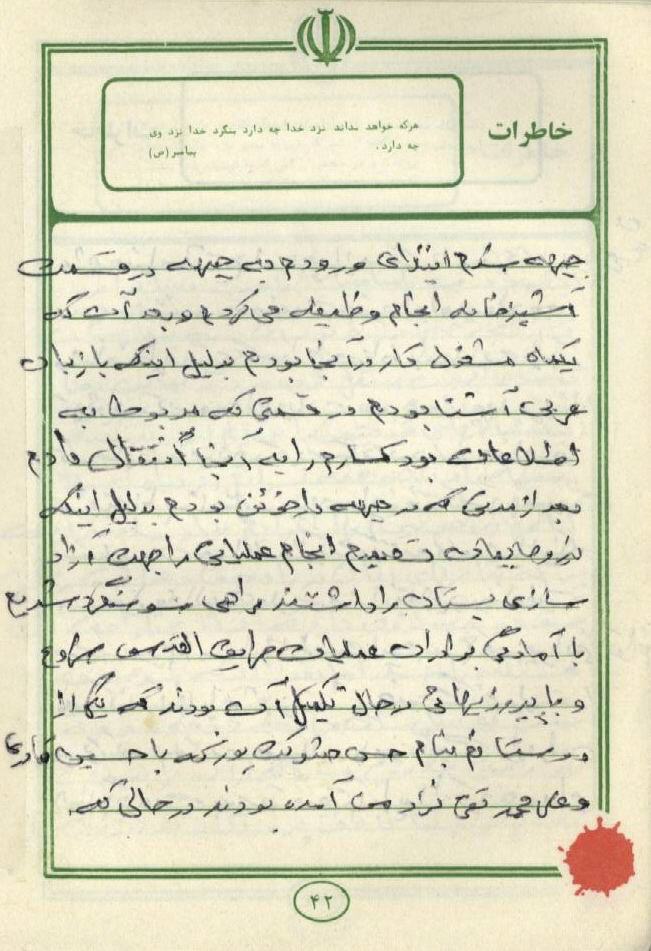 خاطرات
هرکه خواهد بداند نزد خدا چه دارد بنگرد خدا نزد وی
چه دارد. پیامبر (ص)
جبهه شدم ابتدای ورودم به جبهه در قسمت
آشپزخانه انجام وظیفه می‌کردم و بعد آن که
یکماه مشغول کار در آنجا بودم بدلیل اینکه با زبان
عربی آشنا بودم در قسمتی که مربوط به
اطلاعات بود کارم را به آنجا انتقال دادم
بعد از مدتی که در جبهه دارخوئن بودم بدلیل اینکه
نیروها تصمیم انجام عملیاتی را جهت آزاد
سازی بستان را داشتند راهی سوسنگرد شدیم
با آمادگی برادران عملیات طریق القدس
و با پیروزیهائی در حال تکمیل آن بودند که یکی از
دوستانم بنام حسن که با حسین
و علی محمد تقی نزد من آمده بودند در حالی که
۴۲